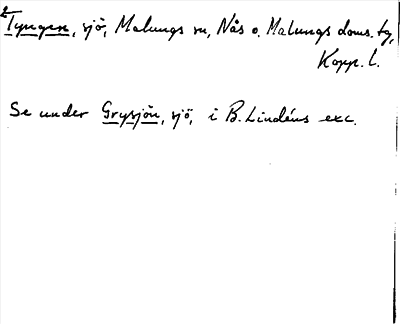 2 Tyngen, sjö, Malungs sn, Nås o. Malungs doms. tg,
Kopp. l.
Se under Grysjön, sjö, i B. Lindéns exc.